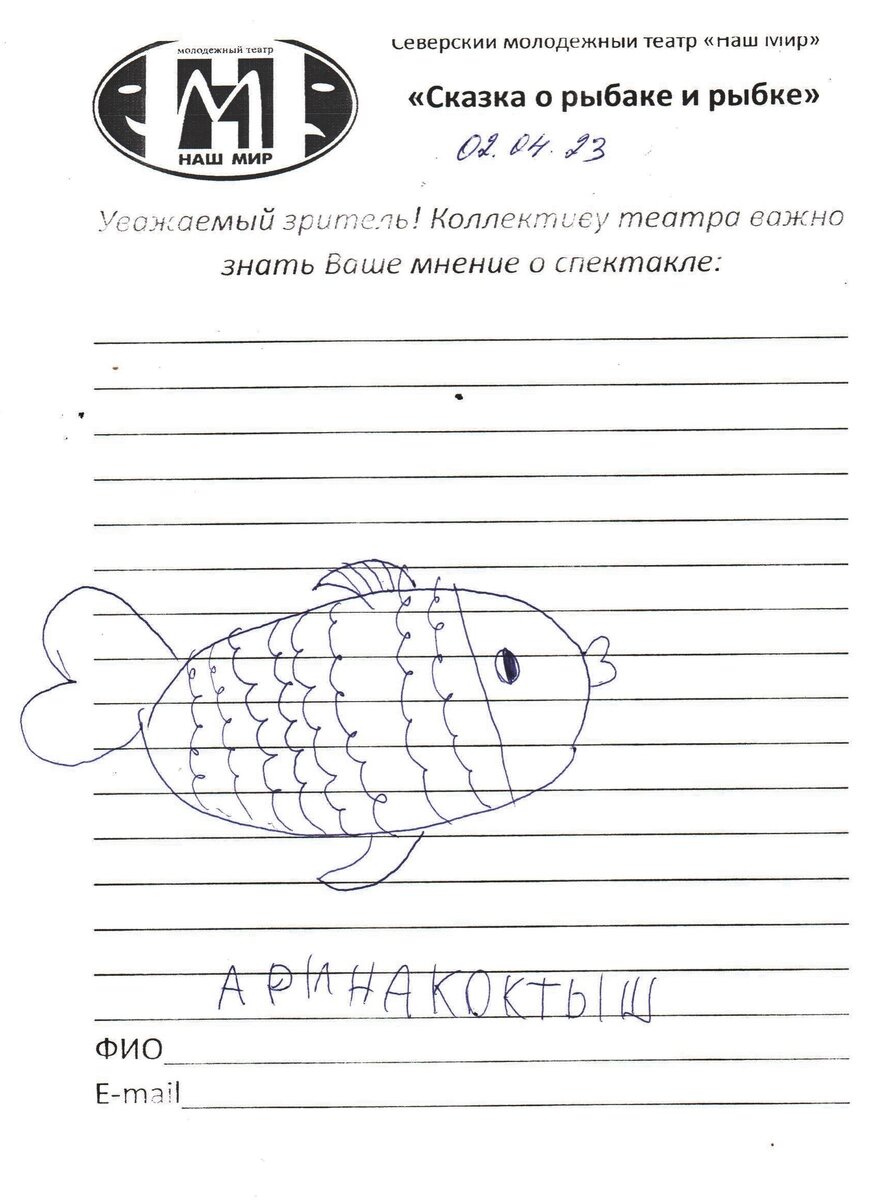 молодежный театр
НМ
НАШ МИР
Северский молодежный театр «Наш Мир»
«Сказка о рыбаке и рыбке»
02.04.23
Уважаемый зритель! Коллективу театра важно
знать Ваше мнение о спектакле:
АРИНАКОКТЫШ
ФИО
E-mail